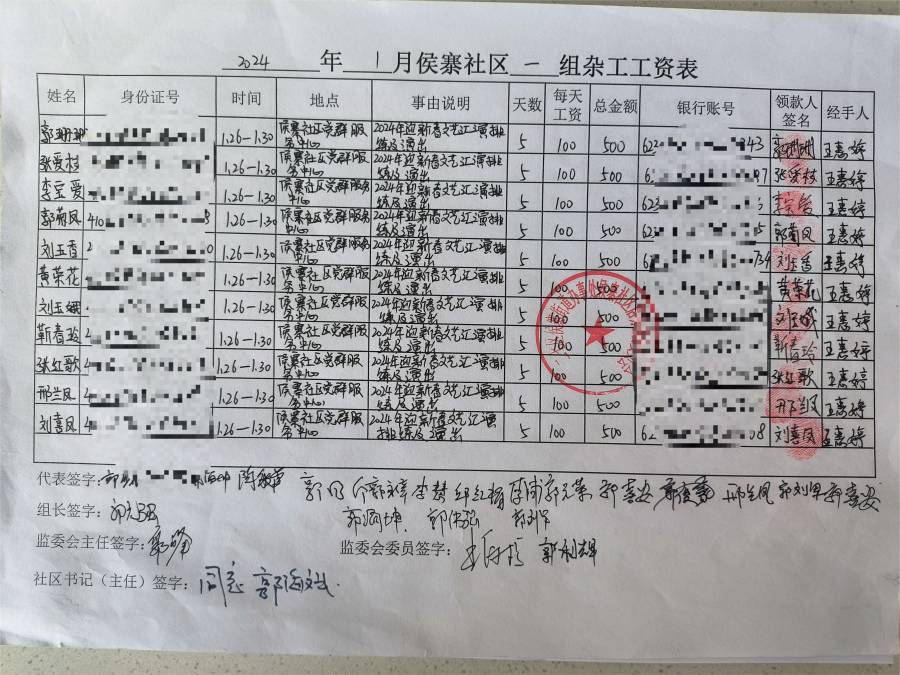 2024 年 1 月侯寨社区 一 组杂工工资表
姓名 身份证号 时间 地点 事由说明 天数 每天工资 总金额 银行账号 领款人签名 经手人
郭珊珊 1.26-1.30 侯寨社区党群服务中心 2024年迎新春文艺汇演排练及演出 5 100 500 622 43 郭珊珊 王喜婷
张爱枝 1.26-1.30 侯寨社区党群服务中心 2024年迎新春文艺汇演排练及演出 5 100 500 62 97 张爱枝 王喜婷
李宝爱 1.26-1.30 侯寨社区党群服务中心 2024年迎新春文艺汇演排练及演出 5 100 500 623 李宝爱 王喜婷
郭菊凤 410 8 1.26-1.30 侯寨社区党群服务中心 2024年迎新春文艺汇演排练及演出 5 100 500 623 郭菊凤 王喜婷
刘玉香 2 0 1.26-1.30 侯寨社区党群服务中心 2024年迎新春文艺汇演排练及演出 5 100 500 62 734 刘玉香 王喜婷
黄荣花 4 1.26-1.30 侯寨社区党群服务中心 2024年迎新春文艺汇演排练及演出 5 100 500 黄荣花 王喜婷
刘玉娥 1.26-1.30 侯寨社区党群服务中心 2024年迎新春文艺汇演排练及演出 5 100 500 刘玉娥 王喜婷
靳春玲 4 1.26-1.30 侯寨社区党群服务中心 2024年迎新春文艺汇演排练及演出 5 100 500 靳春玲 王喜婷
张红歌 4 1.26-1.30 侯寨社区党群服务中心 2024年迎新春文艺汇演排练及演出 5 100 500 张红歌 王喜婷
邢兰凤 4 1.26-1.30 侯寨社区党群服务中心 2024年迎新春文艺汇演排练及演出 5 100 500 邢兰凤 王喜婷
刘喜凤 4 1.26-1.30 侯寨社区党群服务中心 2024年迎新春文艺汇演排练及演出 5 100 500 62 08 刘喜凤 王喜婷
代表签字：
组长签字：
监委会主任签字： 监委会委员签字： 郭利辉
社区书记（主任）签字： 同意